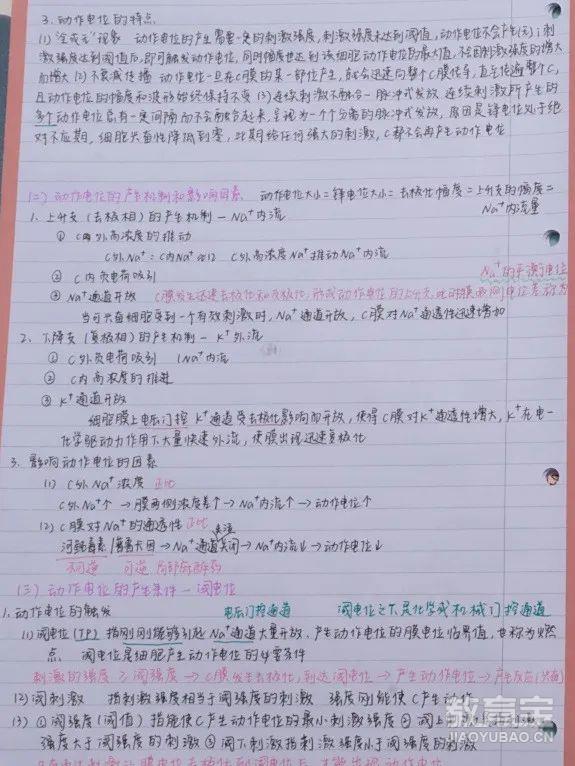 3. 动作电位的特点
(1) "全或无"现象 动作电位的产生需要一定的刺激强度,刺激强度未达到阈值,动作电位不会产生(无);刺
激强度达到阈值后,即可触发动作电位,同时幅度也达到该细胞动作电位的最大值,不会因刺激强度的增大
而增大 (2) 不衰减传播 动作电位一旦在C膜的某一部位产生,就会迅速向整个C膜传导,直至传遍整个C,
且动作电位的幅度和波形始终保持不变 (3) 连续刺激不融合-脉冲式发放 连续刺激所产生的
多个动作电位总有一定间隔而不会融合起来,呈现为一个个分离的脉冲式发放,原因是锋电位处于绝
对不应期,细胞兴奋性降低到零,此期给任何强大的刺激,C都不会再产生动作电位
(二) 动作电位的产生机制和影响因素 动作电位大小=锋电位大小=去极化幅度=上升支的幅度=
Na⁺内流量
1. 上升支 (去极相) 的产生机制 - Na⁺内流
① C内外高浓度的推动
C外Na⁺:C内Na⁺≈12 C外高浓度Na⁺推动Na⁺内流
② C内负电荷吸引
Na⁺的平衡电位
③ Na⁺通道开放 C膜发生迅速去极化和反极化,形成动作电位的上升支,此时膜两侧电位差称为
当可兴奋细胞受到一个有效刺激时,Na⁺通道开放,C膜对Na⁺通透性迅速增加
2. 下降支 (复极相) 的产生机制 - K⁺外流
① C外负电荷吸引 Na⁺内流
② C内高浓度的推进
③ K⁺通道开放
细胞膜上电压门控K⁺通道受去极化影响而开放,使得C膜对K⁺通透性增大,K⁺在电-
化学驱动力作用下大量快速外流,使膜出现迅速复极化
3. 影响动作电位的因素
(1) C外Na⁺浓度 正比
C外Na⁺↑→膜两侧浓度差↑→Na⁺内流↑→动作电位↑
(2) C膜对Na⁺的通透性 正比
河豚毒素/普鲁卡因→Na⁺通道关闭→Na⁺内流↓→动作电位↓
不可逆 可逆 局部麻醉药
(三) 动作电位的产生条件 - 阈电位
1. 动作电位的触发 电压门控通道 阈电位之下是化学或机械门控通道
(1) 阈电位(TP) 指刚刚能够引起Na⁺通道大量开放、产生动作电位的膜电位临界值,也称为燃
点 阈电位是细胞产生动作电位的必要条件
刺激的强度≥阈强度→C膜发生去极化,到达阈电位→产生动作电位→产生反应(兴奋)
(2) 阈刺激 指刺激强度相当于阈强度的刺激 强度刚能使C产生动作
(3) ① 阈强度 (阈值) 指能使C产生动作电位的最小刺激强度 ② 阈上
强度大于阈强度的刺激 ③ 阈下刺激指刺激强度小于阈强度的刺激
教育宝
JIAOYUBAO.COM